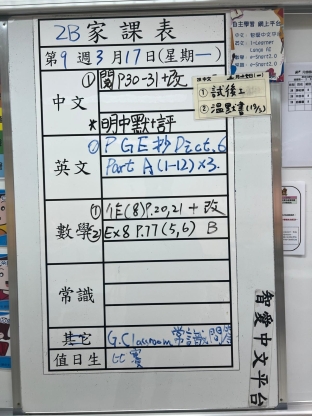 2B 家課表
第9週3月17日(星期一)
自主學習 網上平台
中文
①閱P.30-31+改
*明中默+評
①試後工
②溫默書(18/3)
英文
① P GE 抄 Dict. 6
Part A (1-12) x3.
數學
① 作(8)P.20,21 + 改
② Ex8 P.77(5,6) B
常識
其它
G.Classroom 常識問答
比賽
值日生
智愛中文平台